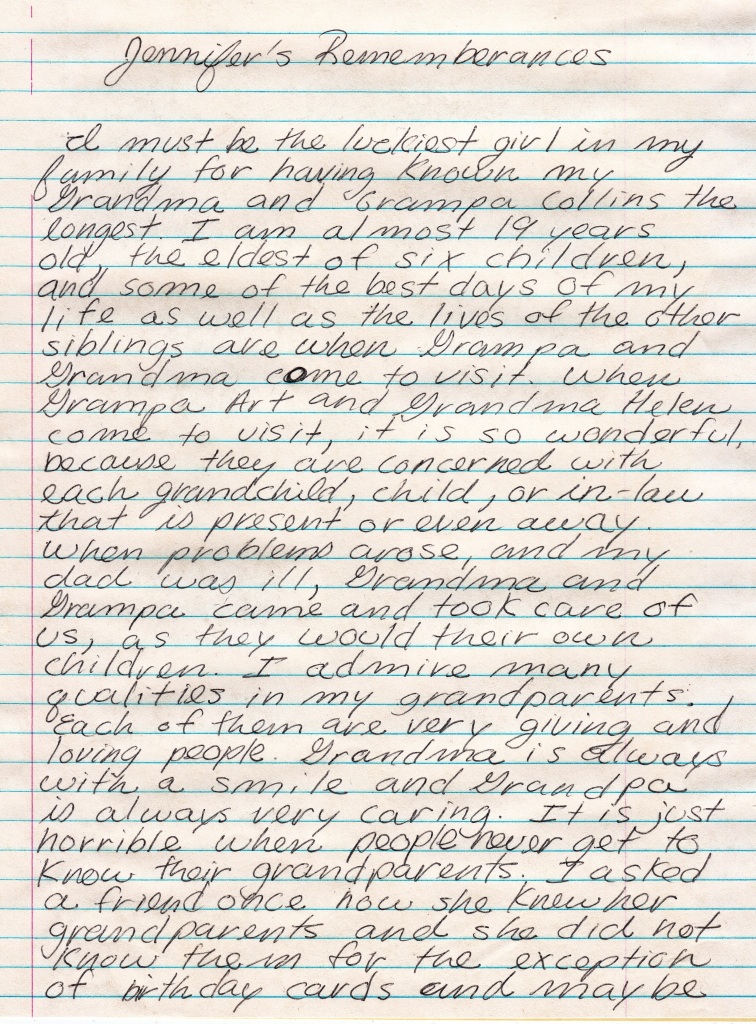 Jennifer's Rememberances
I must be the luckiest girl in my
family for having known my
Grandma and Grampa Collins the
longest. I am almost 19 years
old, the eldest of six children,
and some of the best days of my
life as well as the lives of the other
siblings are when Grampa and
Grandma come to visit. When
Grampa Art and Grandma Helen
come to visit, it is so wonderful,
because they are concerned with
each grandchild, child, or in-law
that is present or even away.
When problems arose, and my
dad was ill, Grandma and
Grampa came and took care of
us, as they would their own
children. I admire many
qualities in my grandparents.
Each of them are very giving and
loving people. Grandma is always
with a smile and Grandpa
is always very caring. It is just
horrible when people never get to
know their grandparents. I asked
a friend once how she knew her
grandparents and she did not
know them for the exception
of birthday cards and maybe